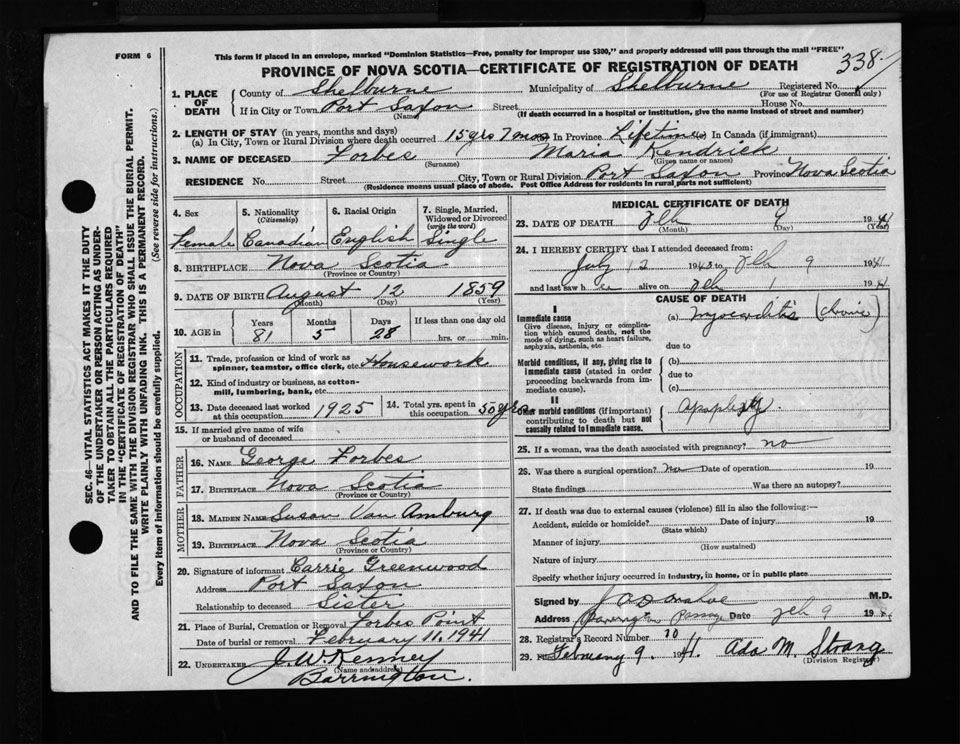 FORM 6
This form if placed in an envelope, marked "Dominion Statistics—Free, penalty for improper use $300," and properly addressed will pass through the mail "FREE"
PROVINCE OF NOVA SCOTIA—CERTIFICATE OF REGISTRATION OF DEATH
338
1. PLACE OF DEATH
County of Shelburne Municipality of Shelburne Registered No.
(For use of Registrar General only)
If in City or Town Port Saxon Street House No.
(Name) (If death occurred in a hospital or institution, give the name instead of street and number)
2. LENGTH OF STAY (in years, months and days)
(a) In City, Town or Rural Division where death occurred 15 yrs 7 mos In Province Lifetime In Canada (if immigrant)
3. NAME OF DECEASED Forbes Maria Kendrick
(Surname) (Given name or names)
RESIDENCE No. Street City, Town or Rural Division Port Saxon Province Nova Scotia
(Residence means usual place of abode. Post Office Address for residents in rural parts not sufficient)
4. Sex
Female
5. Nationality
(Citizenship)
Canadian
6. Racial Origin
English
7. Single, Married, Widowed or Divorced
(write the word)
Single
8. BIRTHPLACE Nova Scotia
(Province or Country)
9. DATE OF BIRTH August 12 1859
(Month) (Day) (Year)
10. AGE in
Years Months Days If less than one day old
81 5 28 hrs. or min.
OCCUPATION
11. Trade, profession or kind of work as spinner, teamster, office clerk, etc. Housework
12. Kind of industry or business, as cotton-mill, lumbering, bank, etc.
13. Date deceased last worked at this occupation 1925
14. Total yrs. spent in this occupation 50 yrs
15. If married give name of wife or husband of deceased
FATHER
16. NAME George Forbes
17. BIRTHPLACE Nova Scotia
(Province or Country)
MOTHER
18. MAIDEN NAME Susan Van Amburg
19. BIRTHPLACE Nova Scotia
(Province or Country)
20. Signature of informant Carrie Greenwood
Address Port Saxon
Relationship to deceased Sister
21. Place of Burial, Cremation or Removal Forbes Point
Date of burial or removal February 11, 1941
22. UNDERTAKER J. W. Kenney
(Name and address)
Barrington.
MEDICAL CERTIFICATE OF DEATH
23. DATE OF DEATH Feb 9 1941
(Month) (Day) (Year)
24. I HEREBY CERTIFY that I attended deceased from:
July 12 Feb 9 1941
and last saw h er alive on Feb 1 1941
CAUSE OF DEATH
I
Immediate cause
Give disease, injury or complication which caused death, not the mode of dying, such as heart failure, asphyxia, asthenia, etc.
(a) Myocarditis (chronic)
due to
Morbid conditions, if any, giving rise to immediate cause (stated in order proceeding backwards from immediate cause).
(b)
due to
(c)
II
Other morbid conditions (if important) contributing to death but not causally related to immediate cause.
apoplexy
25. If a woman, was the death associated with pregnancy? no
26. Was there a surgical operation? no Date of operation 19
State findings Was there an autopsy?
27. If death was due to external causes (violence) fill in also the following:—
Accident, suicide or homicide? Date of injury 19
(State which)
Manner of injury
(How sustained)
Nature of injury
Specify whether injury occurred in industry, in home, or in public place
Signed by M.D.
Address Barrington Passage Date Feb 9 19
28. Registrar's Record Number 10
29. Filed February 9. 1941. Ada M. Strang
(Division Registrar)
SEC. 46—VITAL STATISTICS ACT MAKES IT THE DUTY
OF THE UNDERTAKER OR PERSON ACTING AS UNDER-
TAKER TO OBTAIN ALL THE PARTICULARS REQUIRED
IN THE "CERTIFICATE OF REGISTRATION OF DEATH"
AND TO FILE THE SAME WITH THE DIVISION REGISTRAR WHO SHALL ISSUE THE BURIAL PERMIT.
WRITE PLAINLY WITH UNFADING INK. THIS IS A PERMANENT RECORD.
Every item of information should be carefully supplied. (See reverse side for instructions.)